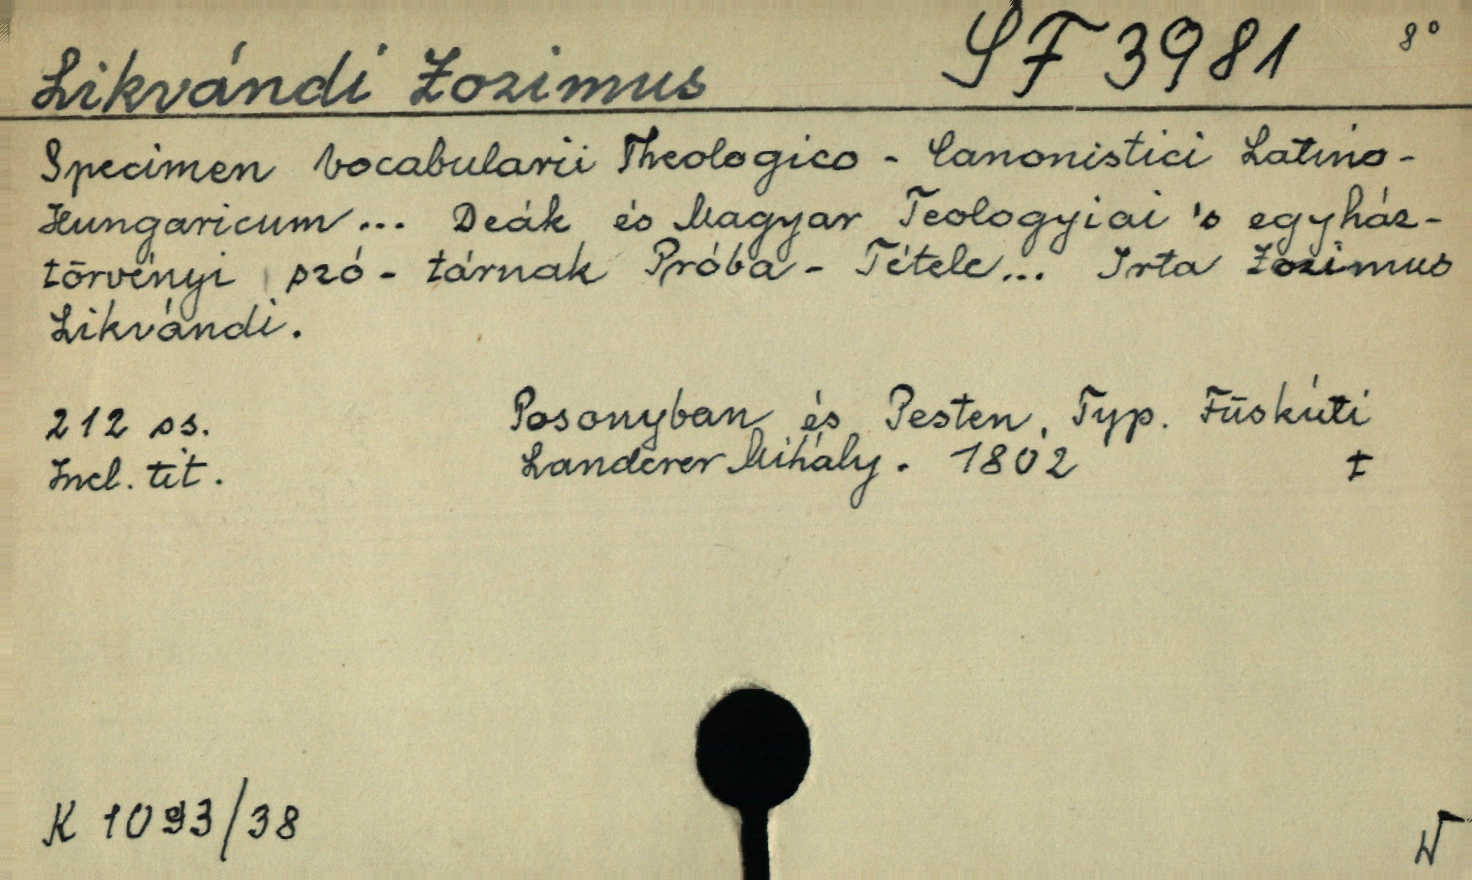 Likvándi Zozimus SF 3981 8°
Specimen Vocabularii Theologico - Canonistici Latino-
Hungaricum ... Deák és Magyar Teologyiai 's egyház-
törvényi szó - tárnak Próba - Tétele ... Irta Zozimus
Likvándi.
212 ss. Posonyban és Pesten, Typ. Füskúti
Incl. tit. Landerer Mihály. 1802 ‡
K 1093/38 W